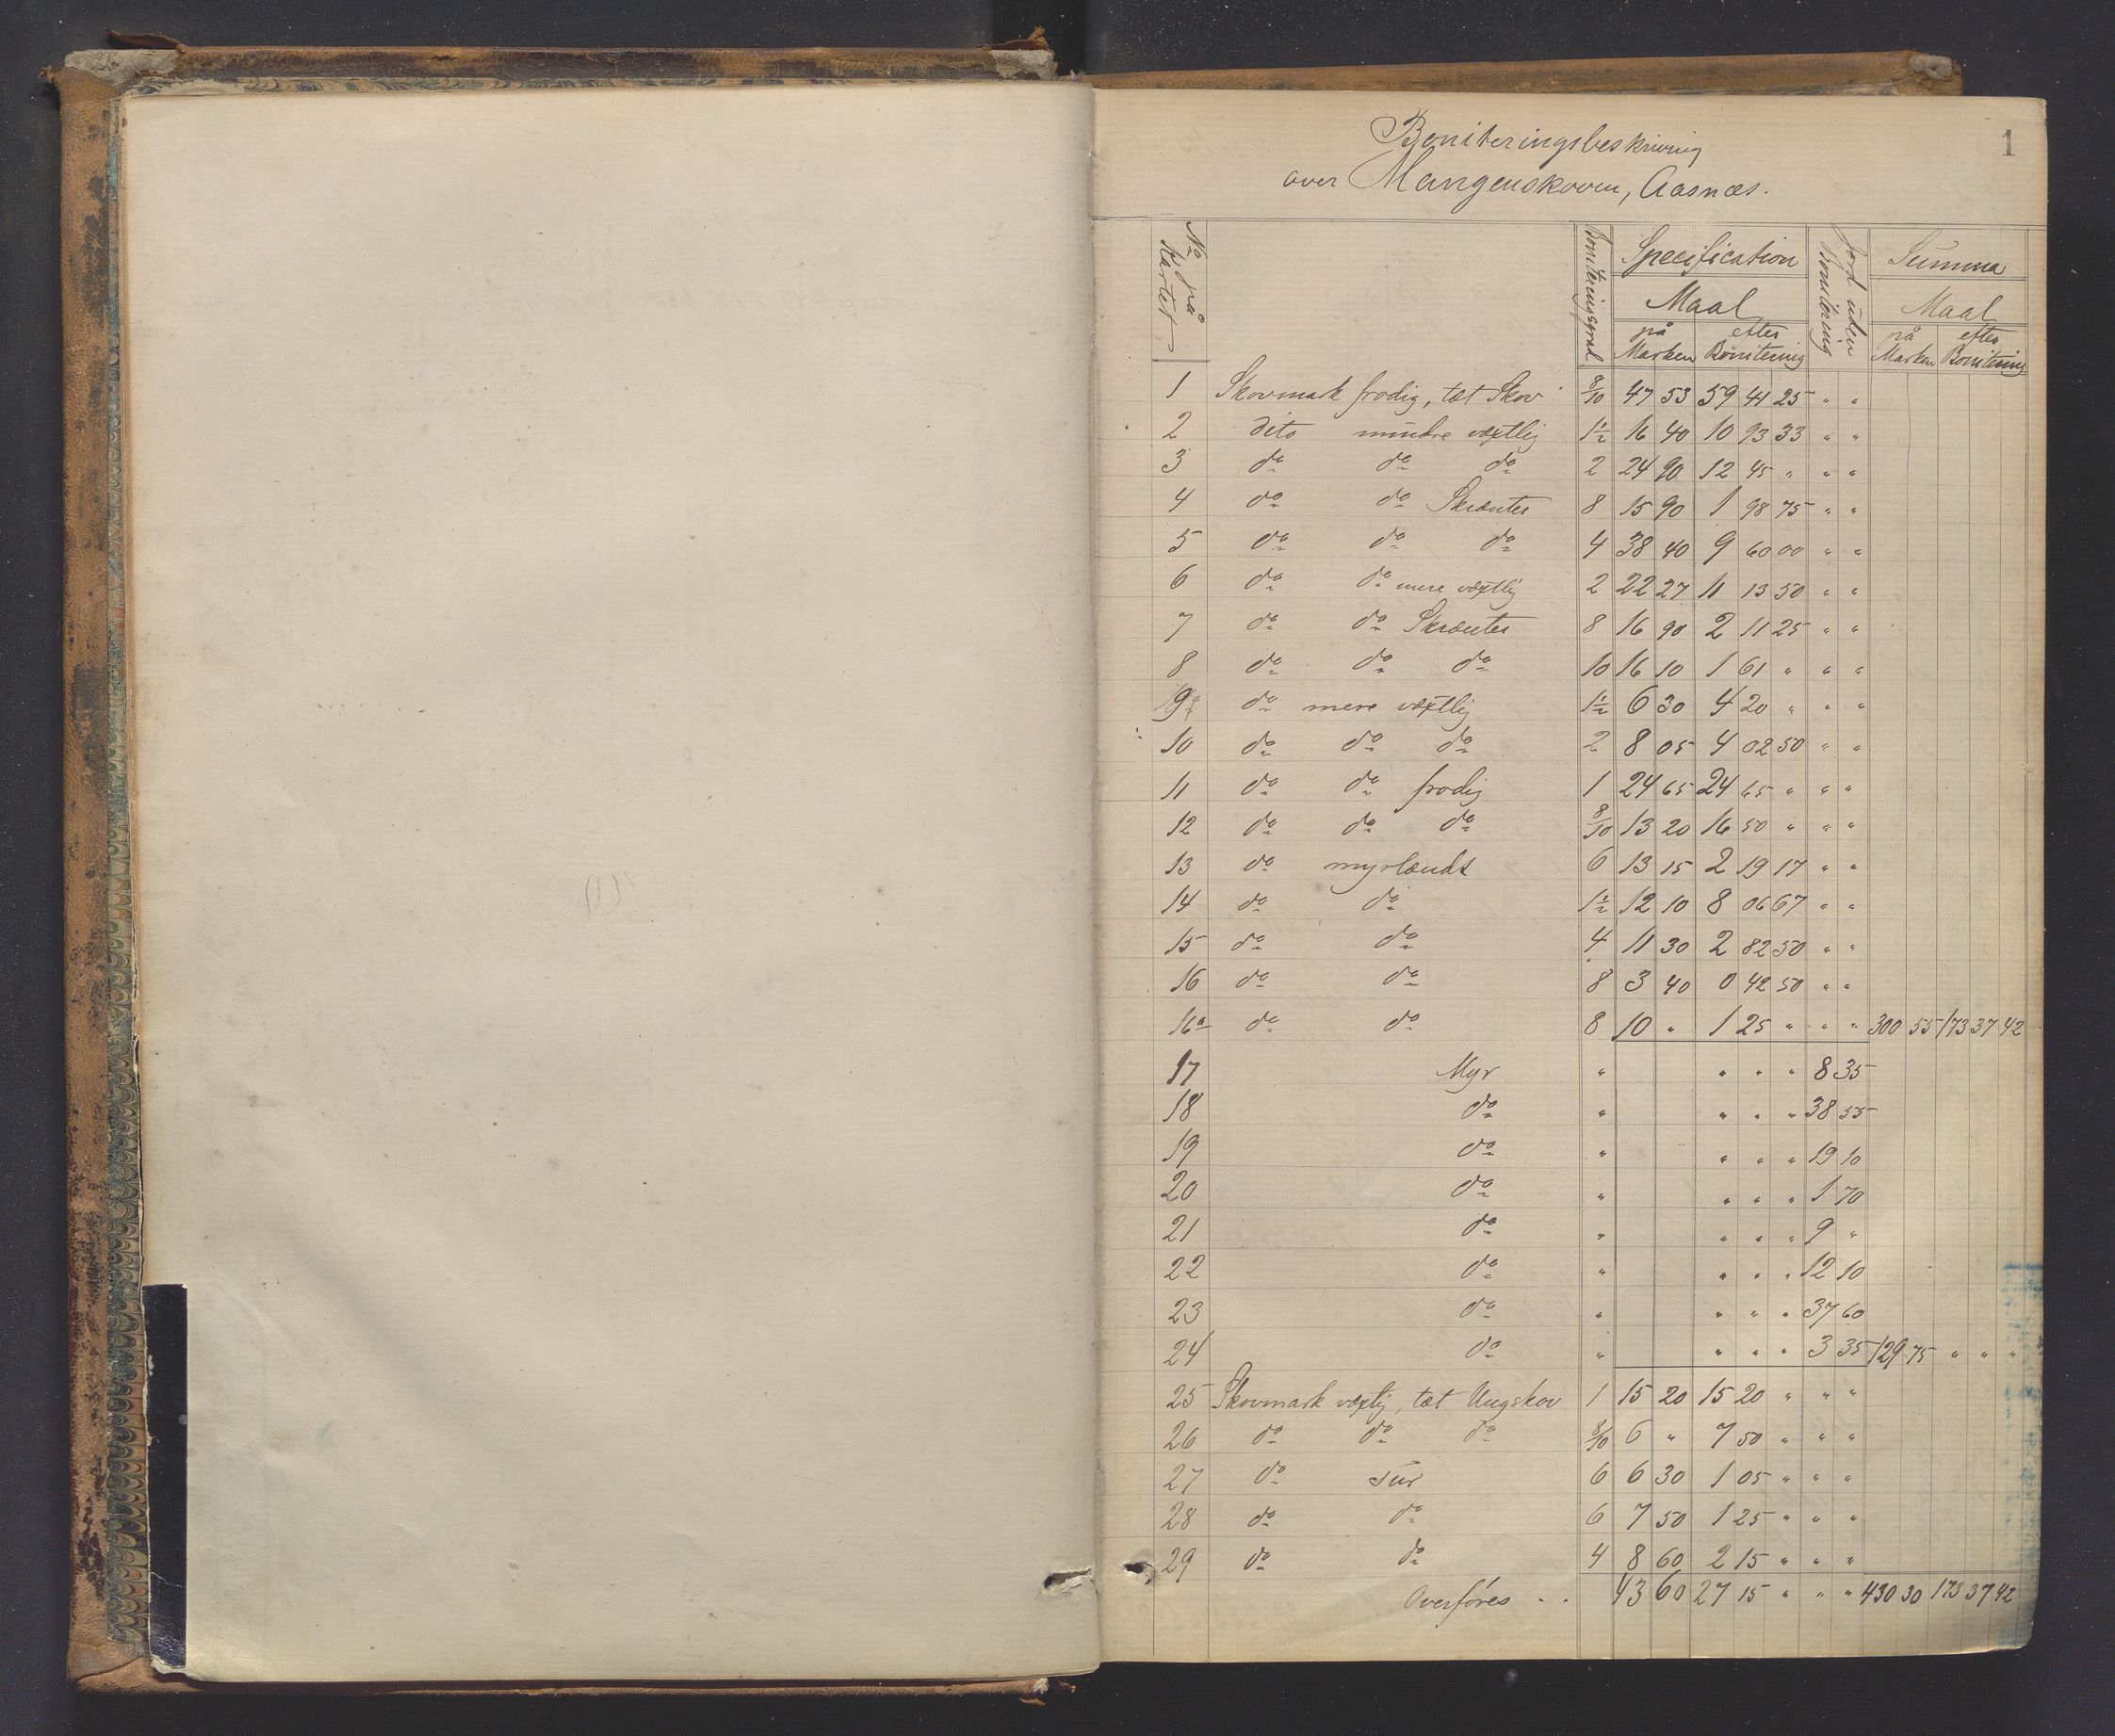 1
Boniteringsbeskrivning
over Mangenskoven, Aasnæs.
No på Kartet | Boniteringsgrad | Specification | Jord uden Bonitering | Summa
Maal | Maal
på Marken | efter Bonitering | på Marken | efter Bonitering
1 Skovmark frodig, tæt Skov 8/10 47 53 59 41 25 " "
2 dito mindre væxtlig 1½ 16 40 10 93 33 " "
3 do do do 2 24 90 12 45 " " "
4 do do Skrænter 8 15 90 1 98 75 " "
5 do do do 4 38 40 9 60 00 " "
6 do do mere væxtlig 2 22 27 11 13 50 " "
7 do do Skrænter 8 16 90 2 11 25 " "
8 do do do 10 16 10 1 61 " " "
9 do mere væxtlig 1½ 6 30 4 20 " " "
10 do do do 2 8 05 4 02 50 " "
11 do do frodig 1 24 65 24 65 " " "
12 do do do 8/10 13 20 16 50 " " "
13 do myrlændt 6 13 15 2 19 17 " "
14 do do 1½ 12 10 8 06 67 " "
15 do do 4 11 30 2 82 50 " "
16 do do 8 3 40 0 42 50 " "
16a do do 8 10 " 1 25 " " " 300 55 173 37 42
17 Myr " " " " 8 35
18 do " " " " 38 55
19 do " " " " 19 10
20 do " " " " 1 70
21 do " " " " 9 "
22 do " " " " 12 10
23 do " " " " 37 60
24 do " " " " 3 35 129 75 " " "
25 Skovmark væxtlig, tæt Ungskov 1 15 20 15 20 " " "
26 do do do 8/10 6 " 7 50 " " "
27 do sur 6 6 30 1 05 " " "
28 do do 6 7 50 1 25 " " "
29 do do 4 8 60 2 15 " " "
Overføres . . 43 60 27 15 " " " 430 30 173 37 42